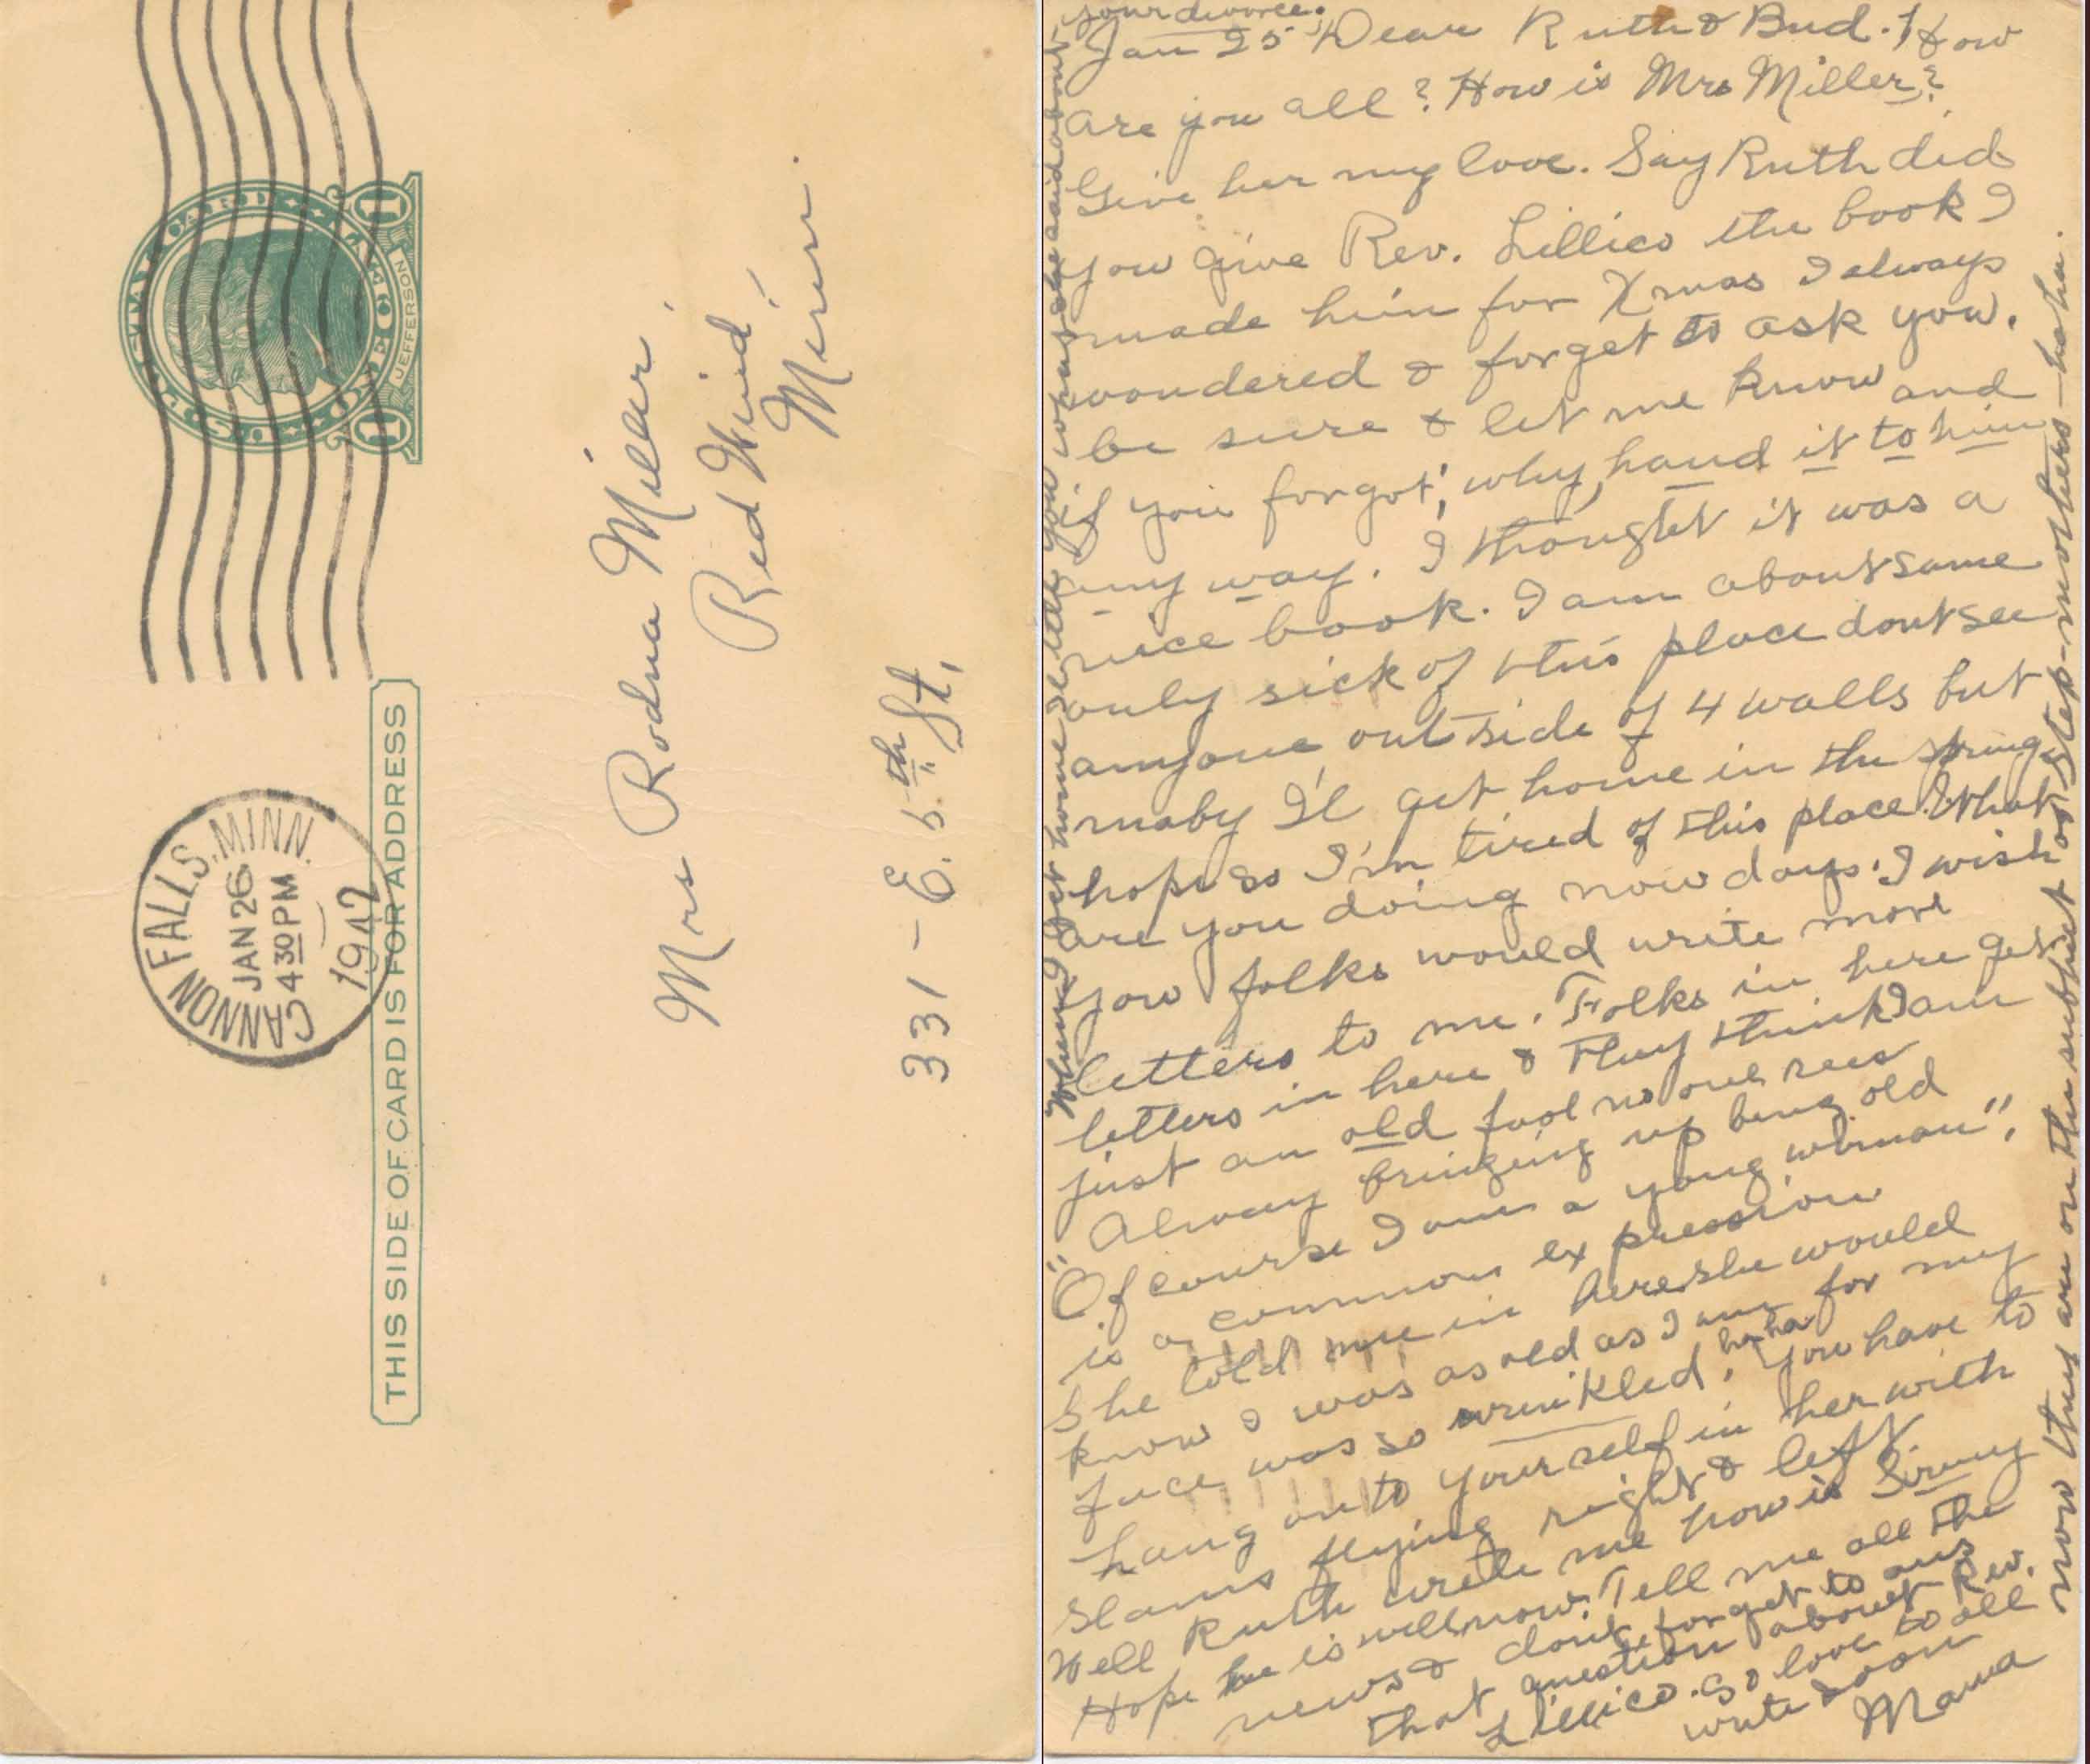 U.S. POSTAL CARD ONE CENT
1 JEFFERSON 1
CANNON FALLS, MINN.
JAN 26
4 30 PM
1942
THIS SIDE OF CARD IS FOR ADDRESS
Mrs Rodna Miller,
Red Wind,
Minn.
331 - E. 5th St,
Jan 25 Dear Ruth & Bud. How
are you all? How is Mrs Miller?
Give her my love. Say Ruth did
you give Rev. Lillico the book I
made him for Xmas I always
wondered & forget to ask you.
be sure & let me know and
if you forgot, why, hand it to him
any way. I thought it was a
nice book. I am about same
only sick of this place dont see
anyone outside of 4 walls but
maby I'l get home in the spring
hope so I'm tired of this place. What
are you doing now days. I wish
you folks would write more
letters to me. Folks in here get
letters in here & They think I am
just an old fool no one sees
Alway bringing up being old
"Of course I am a yong woman",
is a common expression
She told me in here she would
know I was as old as I am for my
face was so wrinkled, ha ha You have to
hang onto yourself in her with
slams flying right & left
Well Ruth write me how is Sonny
Hope he is well now. Tell me all the
news & dont forget to ans
that question about Rev.
Lillico. So love to all
write soon
Mama
now they are on the subject of step-mothers - ha ha.
When I get home I'll tell you what she said about
your divorce.